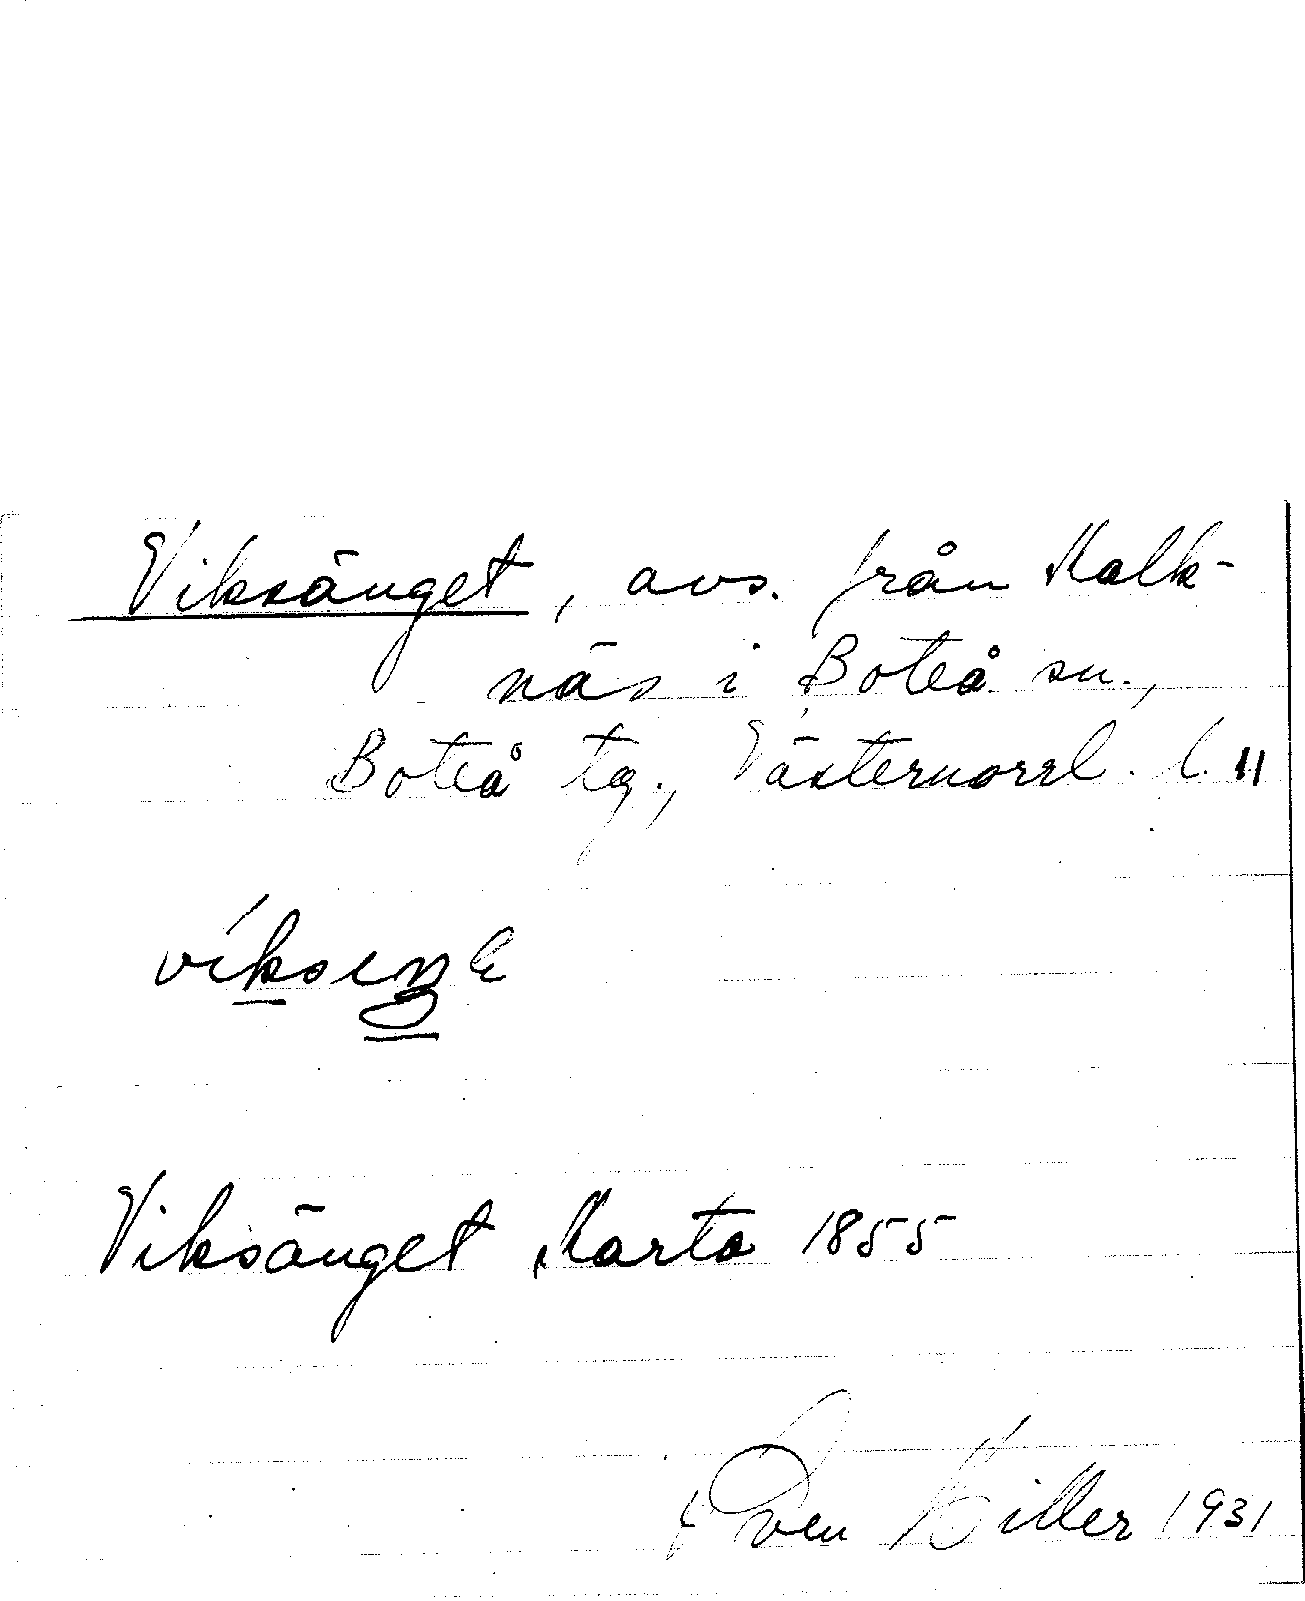 Viksänget, avs. från Malk-
näs i Boteå sn.,
Boteå tg., Västernorrl. l. 11
Viksänget Karta 1855
Sven Hiller 1931